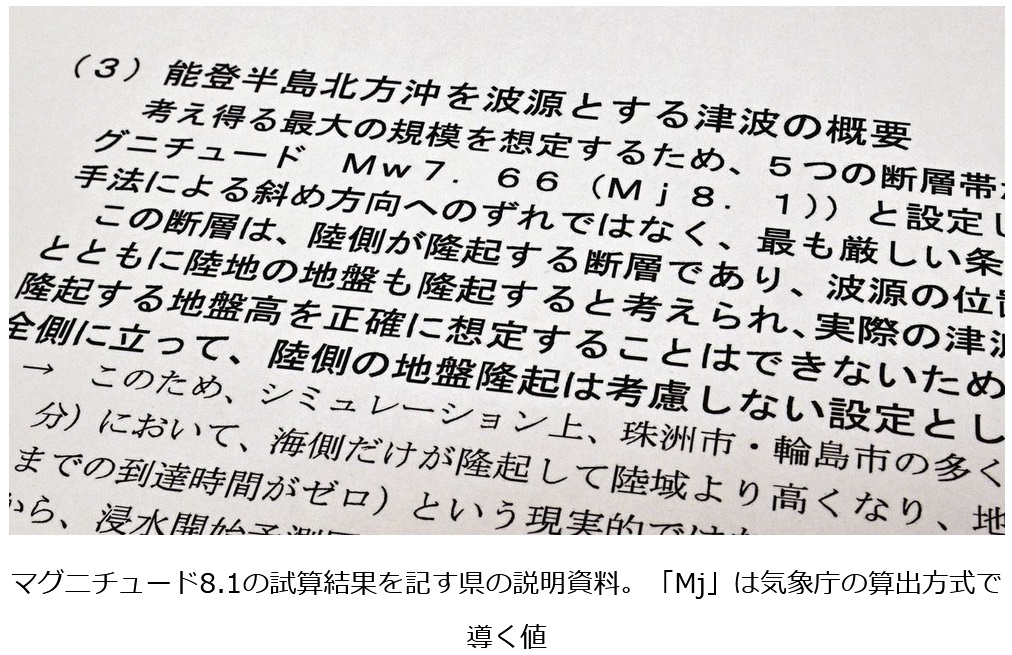 （３）能登半島北方沖を波源とする津波の概要
考え得る最大の規模を想定するため、５つの断層帯が
グニチュード　Ｍｗ７．６６（Ｍｊ８．１））と設定し
手法による斜め方向へのずれではなく、最も厳しい条
この断層は、陸側が隆起する断層であり、波源の位置
とともに陸地の地盤も隆起すると考えられ、実際の津波
隆起する地盤高を正確に想定することはできないため
全側に立って、陸側の地盤隆起は考慮しない設定とし
→　このため、シミュレーション上、珠洲市・輪島市の多く
分）において、海側だけが隆起して陸域より高くなり、地
までの到達時間がゼロ）という現実的では
から、浸水開始予測
マグニチュード8.1の試算結果を記す県の説明資料。「Mj」は気象庁の算出方式で
導く値